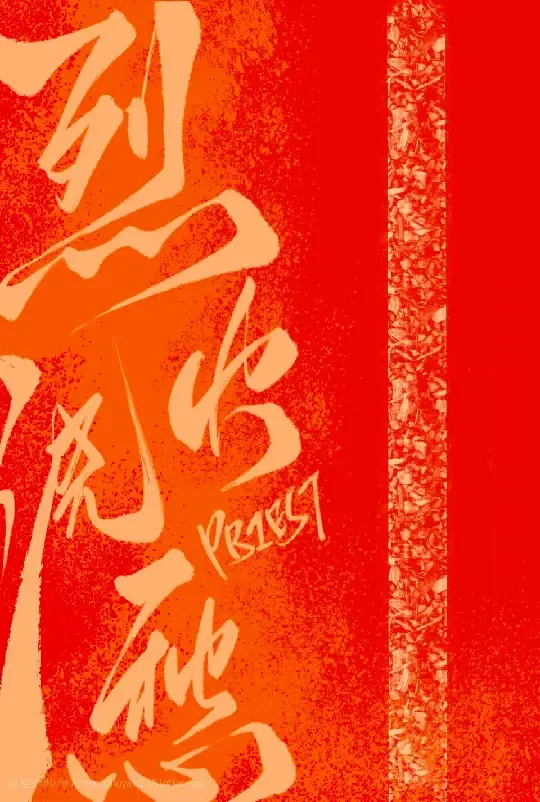 烈火
浇愁
PRIEST